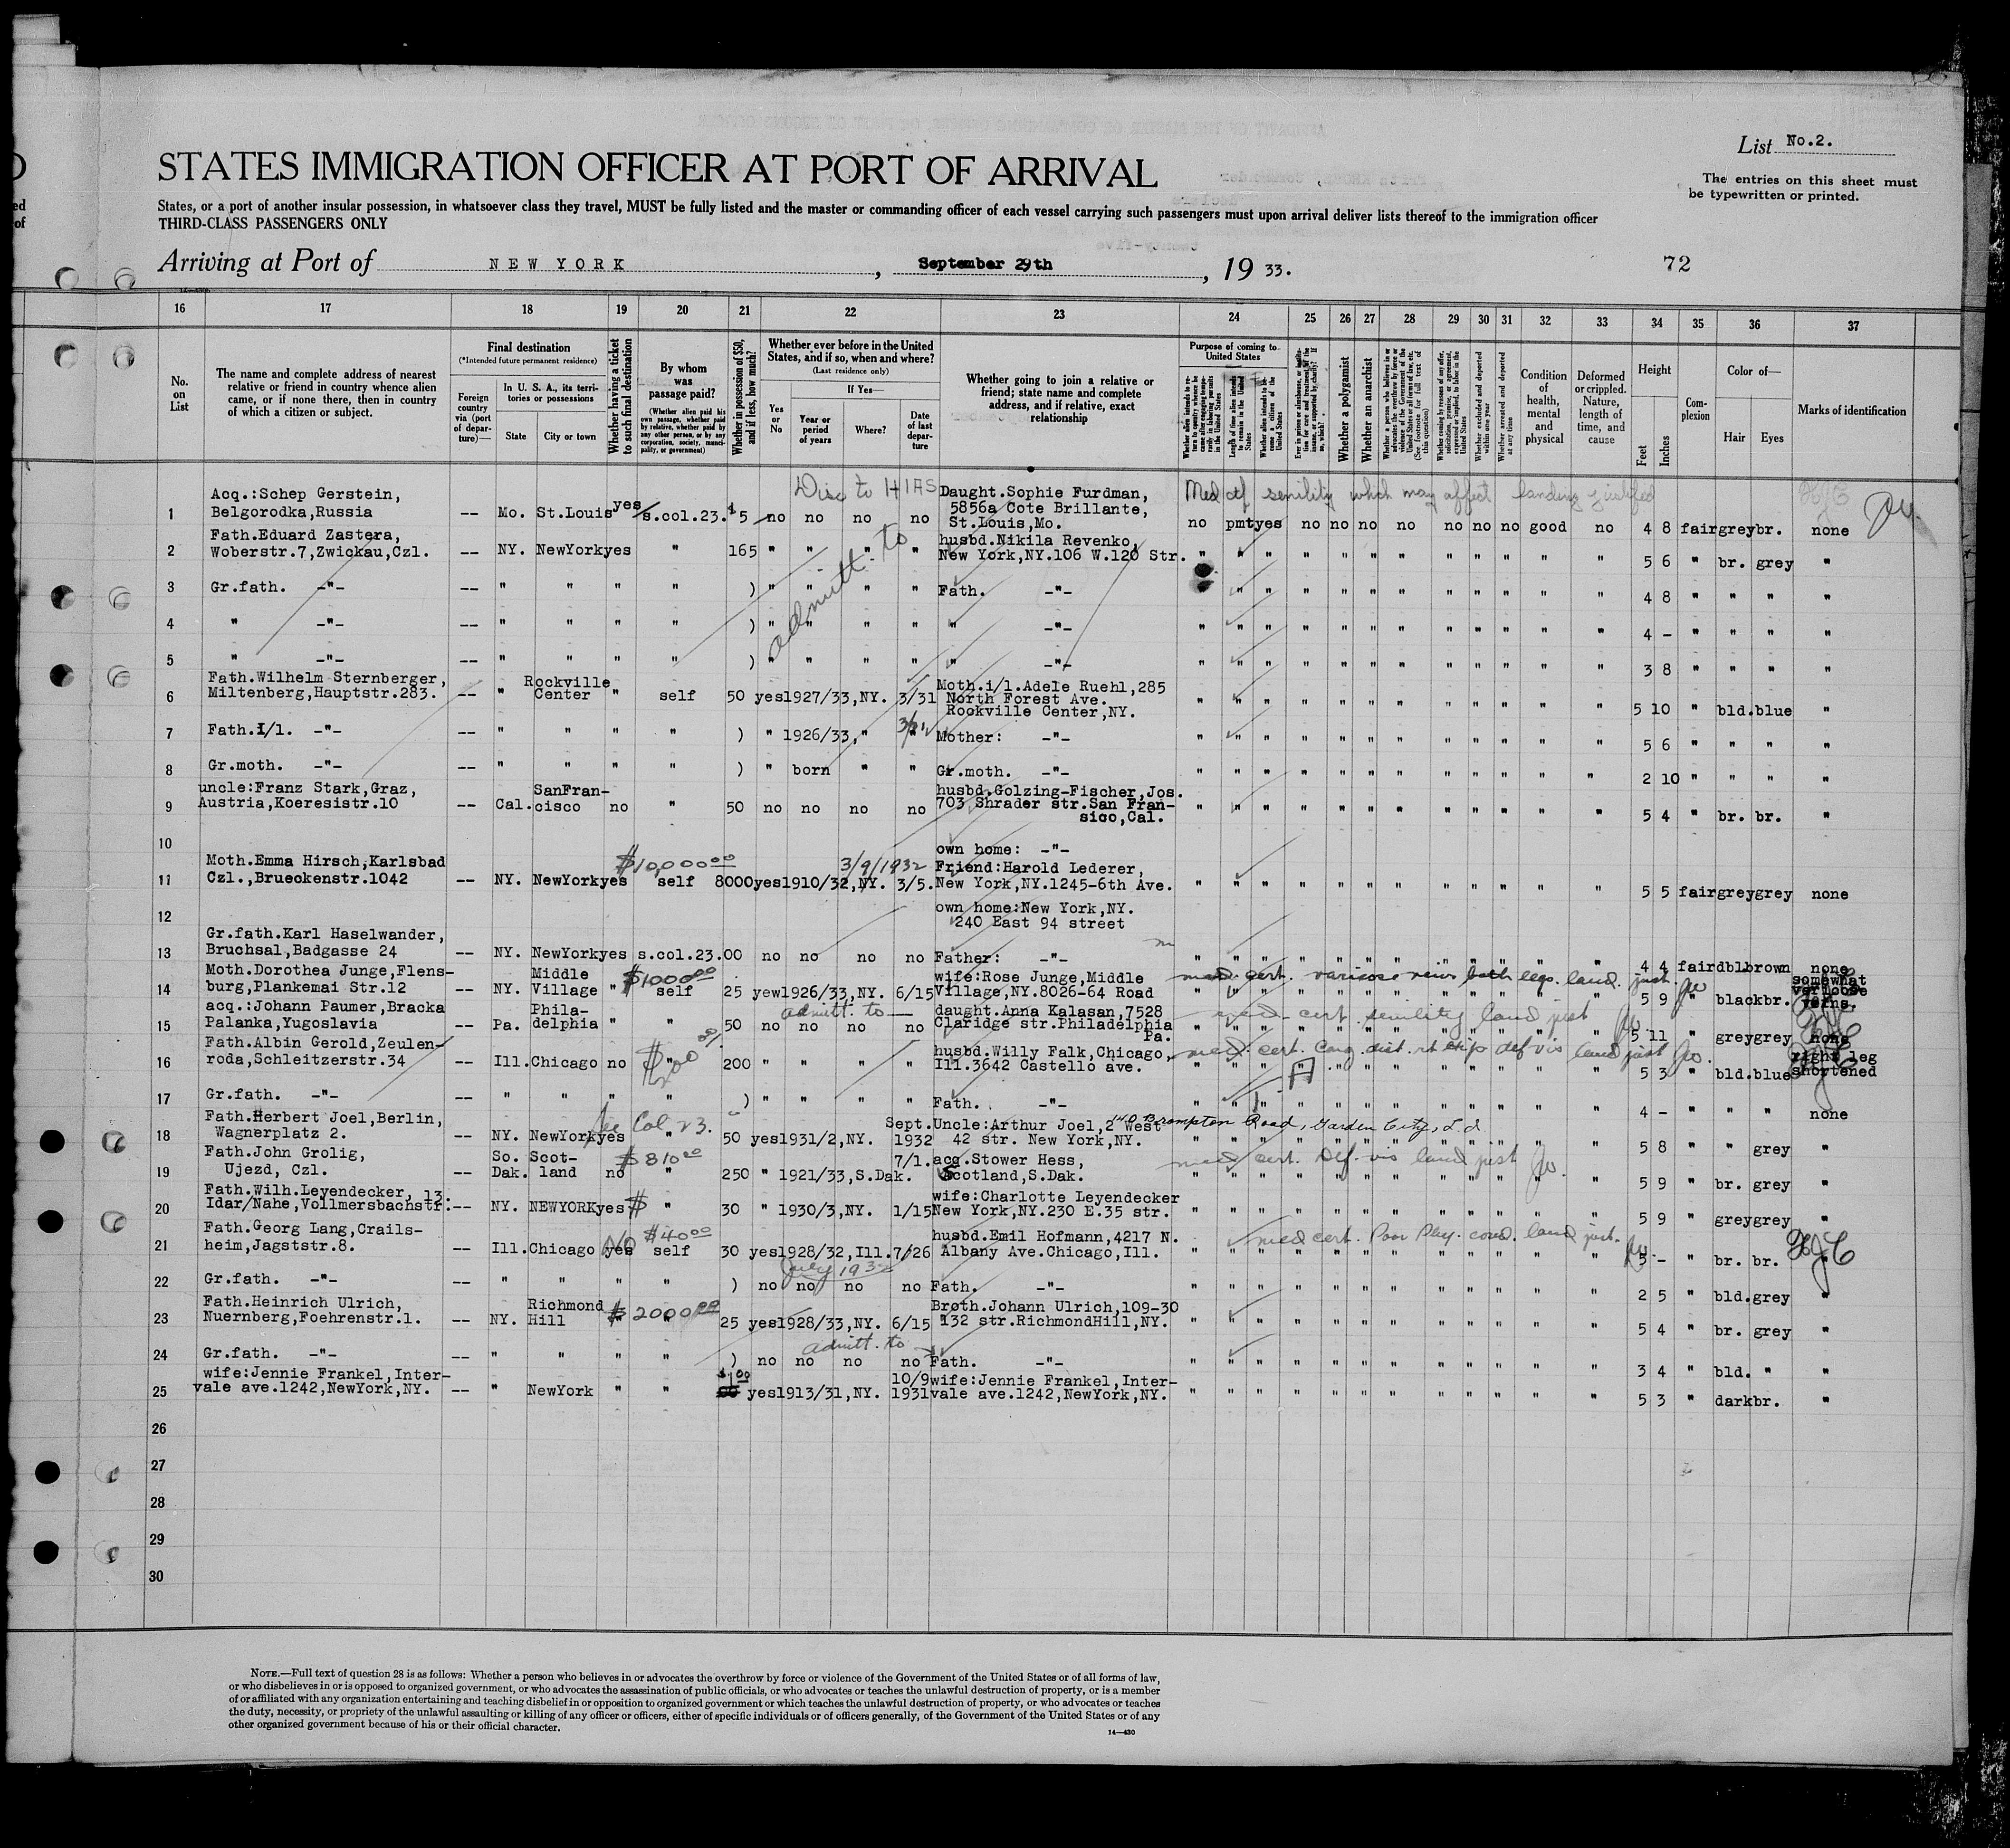 List No.2.
The entries on this sheet must
be typewritten or printed.
STATES IMMIGRATION OFFICER AT PORT OF ARRIVAL
States, or a port of another insular possession, in whatsoever class they travel, MUST be fully listed and the master or commanding officer of each vessel carrying such passengers must upon arrival deliver lists thereof to the immigration officer
THIRD-CLASS PASSENGERS ONLY
Arriving at Port of NEW YORK, September 29th, 19 33.
72
16 17 18 19 20 21 22 23 24 25 26 27 28 29 30 31 32 33 34 35 36 37
No. on List
The name and complete address of nearest relative or friend in country whence alien came, or if none there, then in country of which a citizen or subject.
Final destination
(*Intended future permanent residence)
Foreign country via (port of departure)—
In U. S. A., its territories or possessions
State
City or town
Whether having a ticket to such final destination
By whom was passage paid?
(Whether alien paid his own passage, whether paid by relative, whether paid by any other person, or by any corporation, society, municipality, or government)
Whether in possession of $50, and if less, how much?
Whether ever before in the United States, and if so, when and where?
(Last residence only)
Yes or No
If Yes—
Year or period of years
Where?
Date of last departure
Whether going to join a relative or friend; state name and complete address, and if relative, exact relationship
Purpose of coming to United States
Whether a polygamist
Whether an anarchist
Whether excluded and deported within one year
Whether arrested and deported at any time
Condition of health, mental and physical
Deformed or crippled. Nature, length of time, and cause
Height
Feet
Inches
Complexion
Color of—
Hair
Eyes
Marks of identification
Disc to HIAS
Med ctf senility which may affect landing justified
1 Acq.:Schep Gerstein, Belgorodka,Russia -- Mo. St.Louis yes s.col.23. 5 no no no no Daught.Sophie Furdman, 5856a Cote Brillante, St.Louis,Mo. no pmt yes no no no no no no no good no 4 8 fair grey br. none
2 Fath.Eduard Zastera, Woberstr.7,Zwickau,Czl. -- NY. NewYork yes " 165 " " " " husbd.Nikila Revenko, New York,NY.106 W.120 Str. " " " " " " " " " " " " 5 6 " br. grey "
admitt. to
3 Gr.fath. -"- -- " " " " ) " " " " Father. -"- " " " " " " " " " " " " 4 8 " " " "
4 " -"- -- " " " " ) " " " " " -"- " " " " " " " " " " " " 4 - " " " "
5 " -"- -- " " " " ) " " " " " -"- " " " " " " " " " " " " 3 8 " " " "
6 Fath.Wilhelm Sternberger, Miltenberg,Hauptstr.283. -- " Rockville Center " self 50 yes 1927/33,NY. 3/31 Moth.i/l.Adele Ruehl,285 North Forest Ave. Rockville Center,NY. " " " " " " " " " " " " 5 10 " bld. blue "
7 Fath.I/l. -"- -- " " " " ) " 1926/33," Mother: -"- " " " " " " " " " " " " 5 6 " " " "
8 Gr.moth. -"- -- " " " " ) " born " " Gr.moth. -"- " " " " " " " " " " " " 2 10 " " " "
9 uncle:Franz Stark,Graz, Austria,Koeresistr.10 -- Cal. SanFrancisco no " 50 no no no no husbd.Golzing-Fischer,Jos. 703,Shrader str.San Fransico,Cal. " " " " " " " " " " " " 5 4 " br. br. "
10 own home: -"-
$10,000.00 3/9/1932
11 Moth.Emma Hirsch,Karlsbad Czl.,Brueckenstr.1042 -- NY. NewYork yes self 8000 yes 1910/32,NY. 3/5. Friend:Harold Lederer, New York,NY.1245-6th Ave. " " " " " " " " " " " " 5 5 fair grey grey none
12 own home:New York,NY. 240 East 94 street
13 Gr.fath.Karl Haselwander, Bruchsal,Badgasse 24 -- NY. NewYork yes s.col.23. 00 no no no no Father: -"- " " " " " " " " " " " " 4 4 fair dbl. brown none
$1000.00 med. cert. varicose veins both legs. land. just.
14 Moth.Dorothea Junge,Flensburg,Plankemai Str.12 -- NY. Middle Village " self 25 yew 1926/33,NY. 6/15 wife:Rose Junge,Middle Village,NY.8026-64 Road " " " " " " " " " " " " 5 9 " black br. somewhat
admitt. to med. cert. senility land just
15 acq.:Johann Paumer,Bracka Palanka,Yugoslavia -- Pa. Philadelphia " " 50 no no no no daught.Anna Kalasan,7528 Claridge str.Philadelphia Pa. " " " " " " " " " " " " 5 11 " grey grey none
med. cert. Cong. dist. rt hip def vis land just
16 Fath.Albin Gerold,Zeulenroda,Schleitzerstr.34 -- Ill. Chicago no " 200 " " " " husbd.Willy Falk,Chicago, Ill.3642 Castello ave. " " " " " " " " " " " " 5 3 " bld. blue right leg shortened
17 Gr.fath. -"- -- " " " " ) " " " " Fath. -"- " " " " " " " " " 4 - " " " none
See Col 23. 140 Brompton Road, Garden City, L.I.
18 Fath.Herbert Joel,Berlin, Wagnerplatz 2. -- NY. NewYork yes 50 yes 1931/2,NY. Sept. 1932 Uncle:Arthur Joel,2 West 42 str. New York,NY. " " " " " " " " " " " " 5 8 " " grey "
$810.00 med cert. Def. vis land just
19 Fath.John Grolig, Ujezd, Czl. -- So. Dak. Scotland no " 250 " 1921/33,S.Dak. 7/1. acq.Stower Hess, Scotland,S.Dak. " " " " " " " " " " " " 5 9 " br. grey "
20 Fath.Wilh.Leyendecker, Idar/Nahe,Vollmersbachstr.13. -- NY. NEWYORK yes $ " 30 " 1930/3,NY. 1/15 wife:Charlotte Leyendecker New York,NY.230 E.35 str. " " " " " " " " " " " " 5 9 " grey grey "
No $40.00 med cert. Poor Phy. cond. land just.
21 Fath.Georg Lang,Crailsheim,Jagststr.8. -- Ill. Chicago yes self 30 yes 1928/32,Ill. 7/26 husbd.Emil Hofmann,4217 N. Albany Ave.Chicago,Ill. " " " " " " " " " " " " 5 - " br. br. "
July 1932
22 Gr.fath. -"- -- " " " " ) no no no no Fath. -"- " " " " " " " " " " " " 2 5 " bld. grey "
$2000.00
23 Fath.Heinrich Ulrich, Nuernberg,Foehrenstr.1. -- NY. Richmond Hill 25 yes 1928/33,NY. 6/15 Broth.Johann Ulrich,109-30 132 str.RichmondHill,NY. " " " " " " " " " " " " 5 4 " br. grey "
admitt. to
24 Gr.fath. -"- -- " " " " ) no no no no Fath. -"- " " " " " " " " " " " " 3 4 " bld. " "
25 wife:Jennie Frankel,Intervale ave.1242,NewYork,NY. -- " NewYork " " yes 1913/31,NY. 10/9 1931 wife:Jennie Frankel,Intervale ave.1242,NewYork,NY. " " " " " " " " " " " " 5 3 " dark br. "
26
27
28
29
30
NOTE.—Full text of question 28 is as follows: Whether a person who believes in or advocates the overthrow by force or violence of the Government of the United States or of all forms of law,
or who disbelieves in or is opposed to organized government, or who advocates the assassination of public officials, or who advocates or teaches the unlawful destruction of property, or is a member
of or affiliated with any organization entertaining and teaching disbelief in or opposition to organized government or which teaches the unlawful destruction of property, or who advocates or teaches
the duty, necessity, or propriety of the unlawful assaulting or killing of any officer or officers, either of specific individuals or of officers generally, of the Government of the United States or of any
other organized government because of his or their official character.
14—430